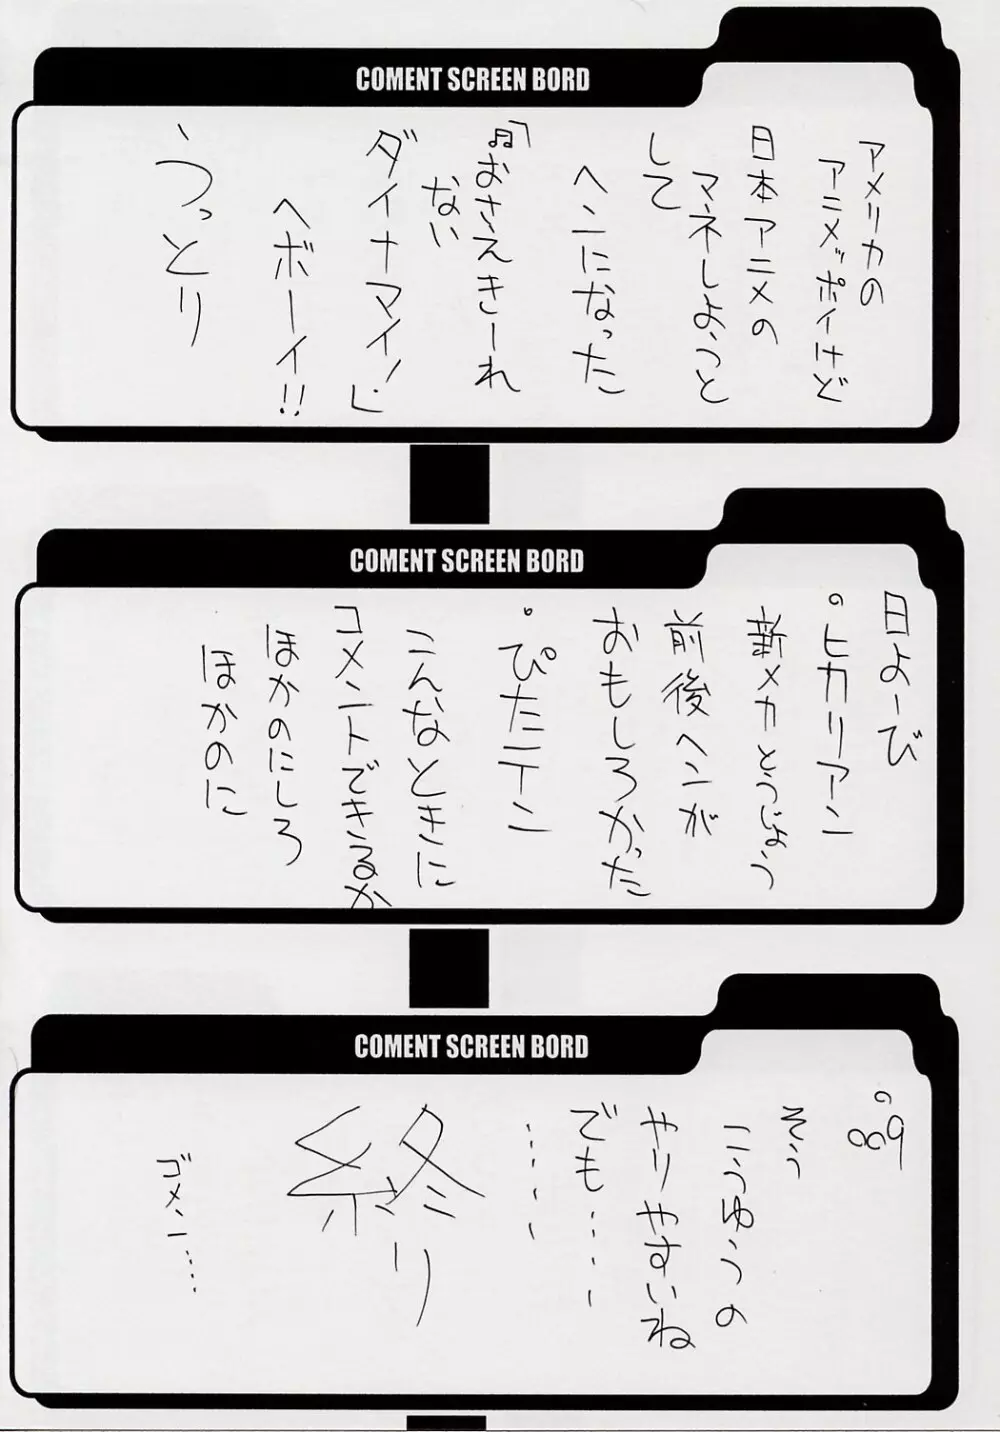 COMENT SCREEN BORD
アメリカの
アニメッポイけど
日本アニメの
マネしようと
して
ヘンになった
「♬おさえきーれ
ない
ダイナマイ!」
ヘボーイ!!
、うっとり
COMENT SCREEN BORD
日よーび
。ヒカリアン
新メカとうじょう
前後ヘンが
おもしろかった
。ぴたテン
こんなときに
コメントできるか
ほかのにしろ
ほかのに
COMENT SCREEN BORD
。889
そう
こうゆうの
やりやすいね
でも……
……
終
り
ゴメン……